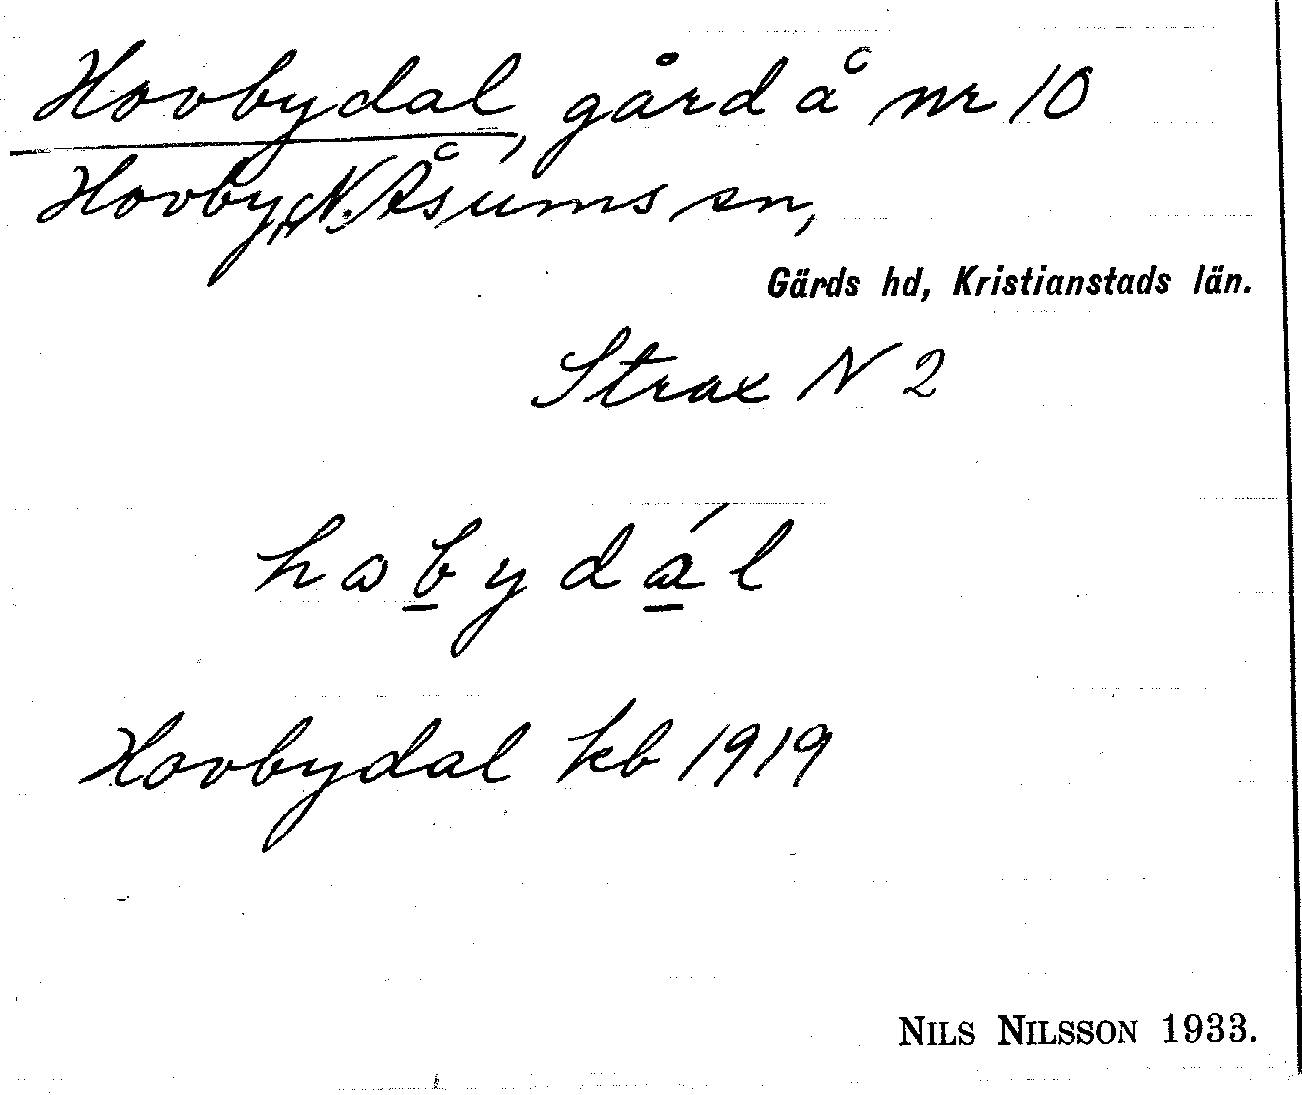 Hovbydal, gård å nr 10
Hovby, N. Åsums sn,
Gärds hd, Kristianstads län.
Strax N 2
habydál
Hovbydal kb 1919
NILS NILSSON 1933.